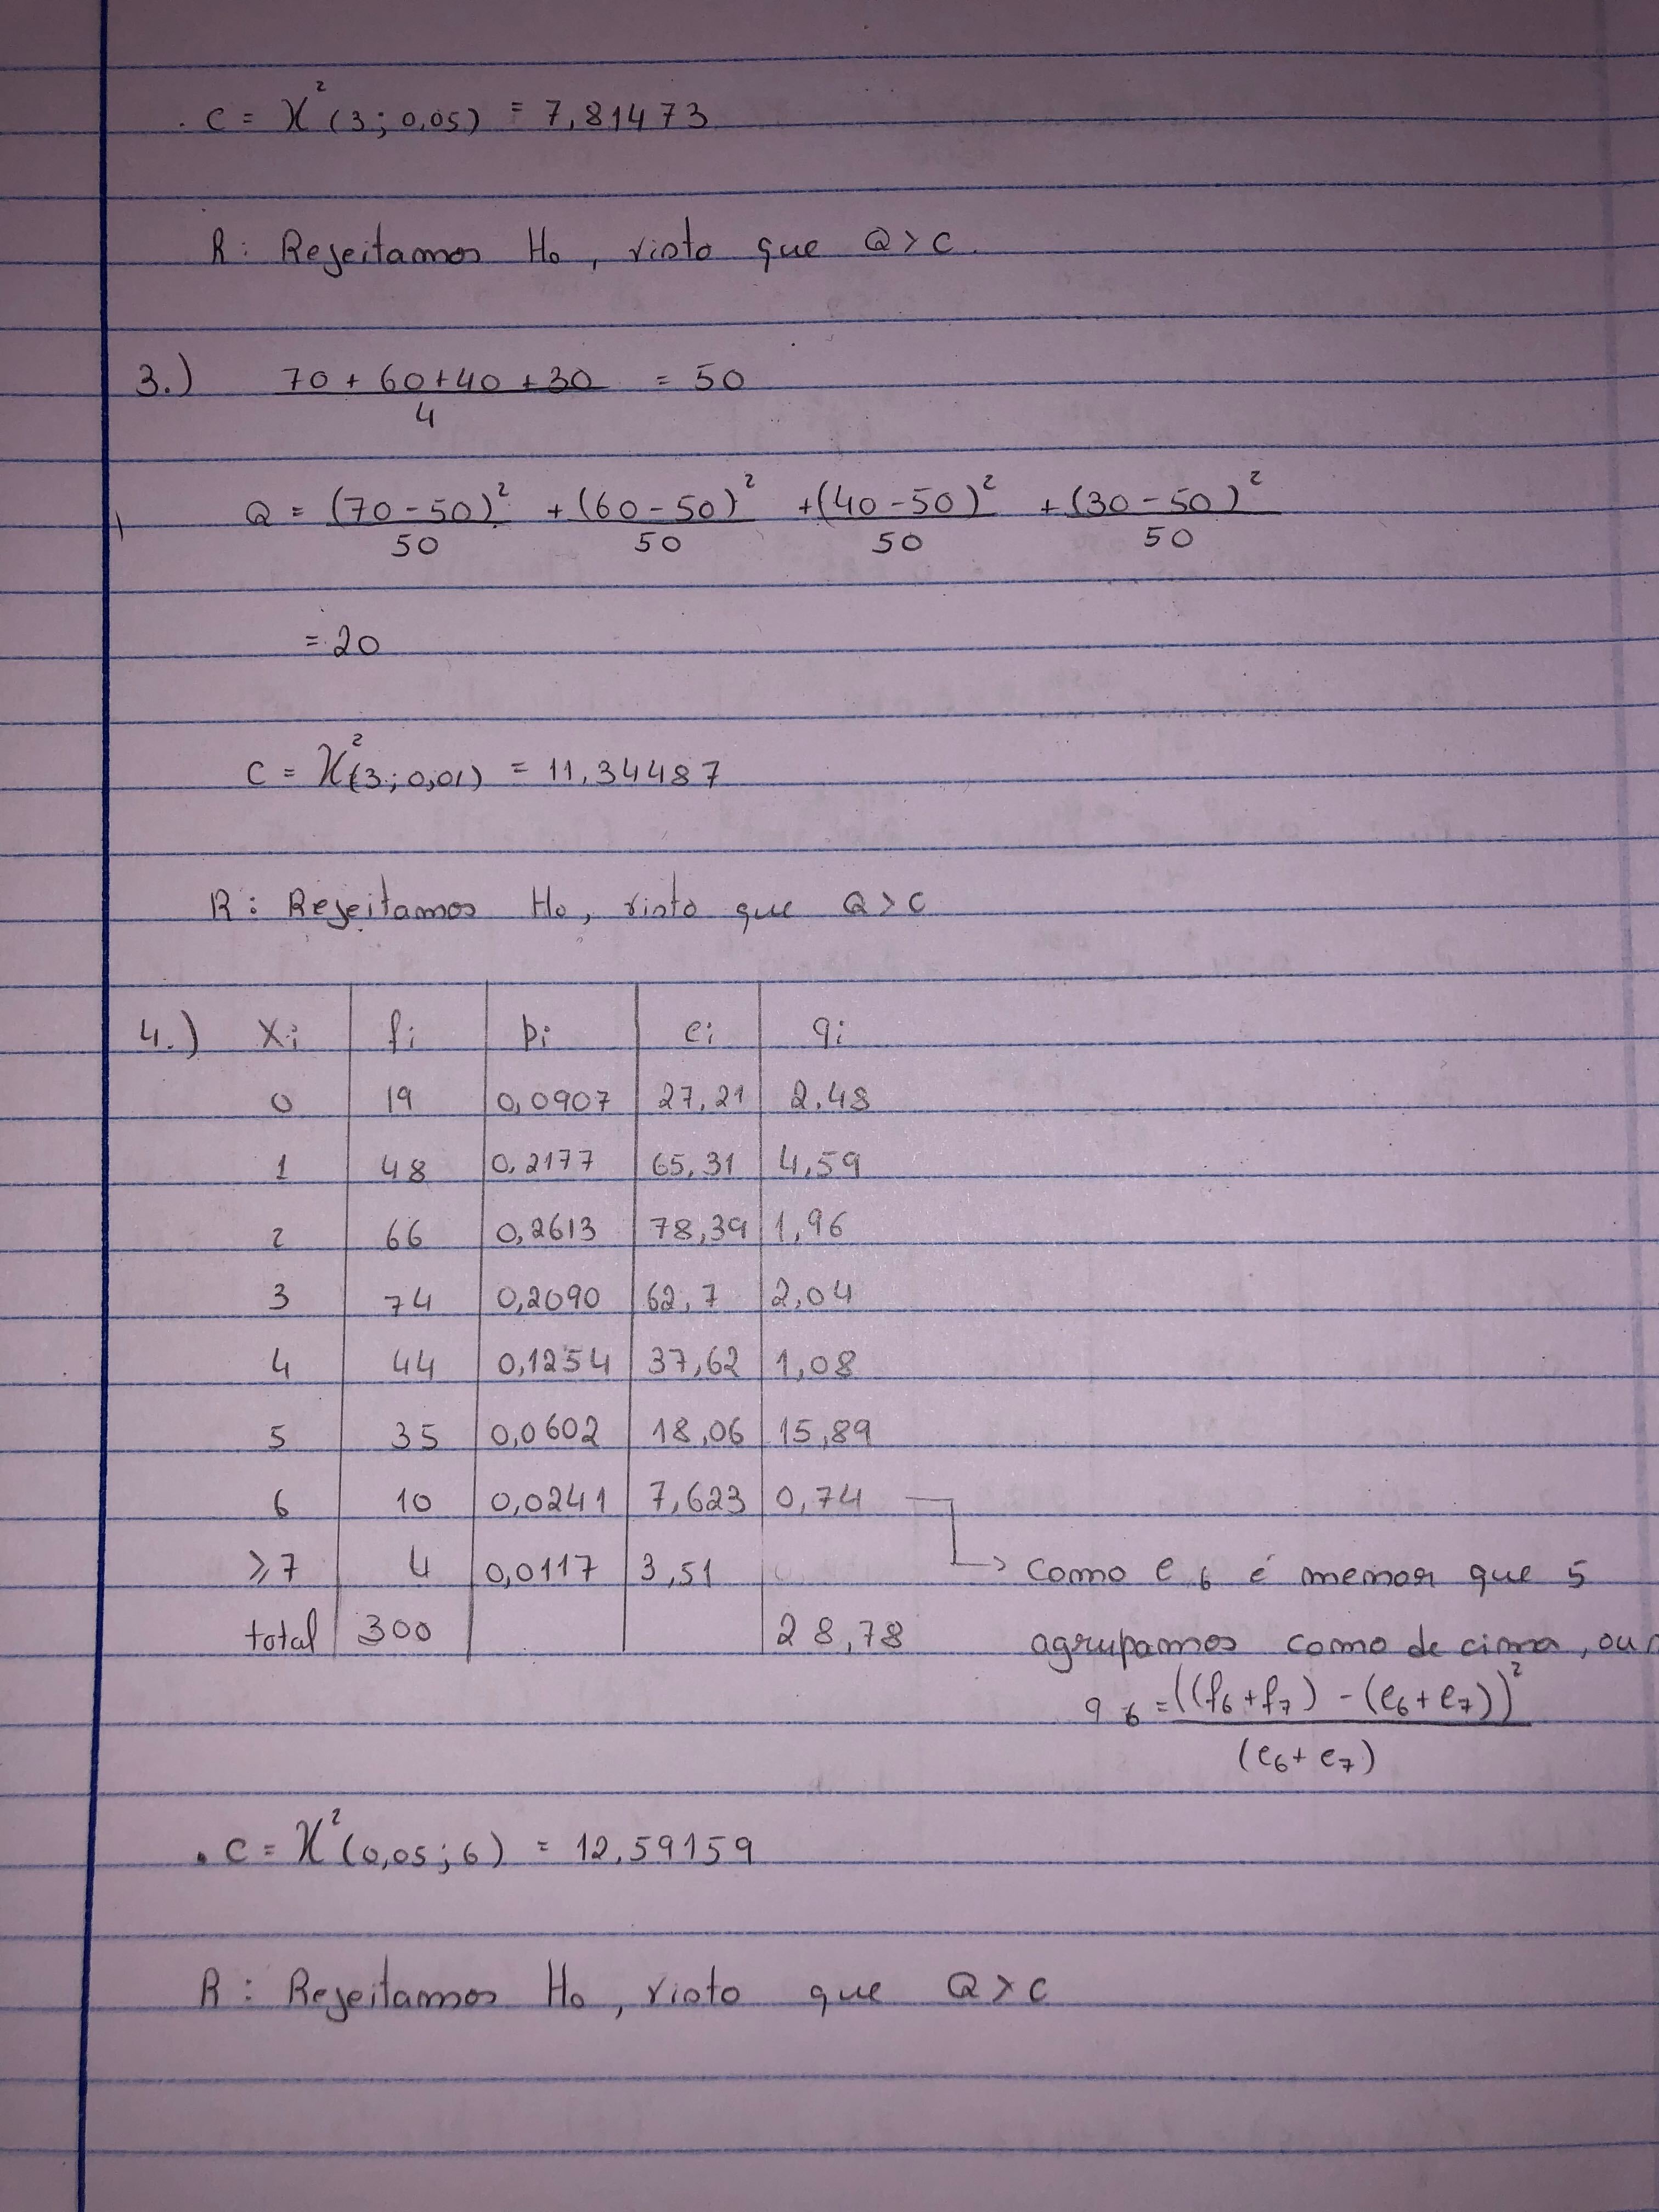 . C = χ² (3; 0,05) = 7,81473
R: Rejeitamos H₀, visto que Q > C.
3.) (70 + 60 + 40 + 30) / 4 = 50
Q = (70 - 50)² / 50 + (60 - 50)² / 50 + (40 - 50)² / 50 + (30 - 50)² / 50
= 20
C = χ² (3; 0,01) = 11,34487
R: Rejeitamos H₀, visto que Q > C
4.) Xi | fi | pi | ei | qi
0 | 19 | 0,0907 | 27,21 | 2,48
1 | 48 | 0,2177 | 65,31 | 4,59
2 | 66 | 0,2613 | 78,39 | 1,96
3 | 74 | 0,2090 | 62,7 | 2,04
4 | 44 | 0,1254 | 37,62 | 1,08
5 | 35 | 0,0602 | 18,06 | 15,89
6 | 10 | 0,0241 | 7,623 | 0,74
≥7 | 4 | 0,0117 | 3,51
→ Como e₆ é menor que 5
total | 300 | | | 28,78
agrupamos como de cima, ou
q₆ = ((f₆ + f₇) - (e₆ + e₇))² / (e₆ + e₇)
. C = χ² (0,05; 6) = 12,59159
R: Rejeitamos H₀, visto que Q > C